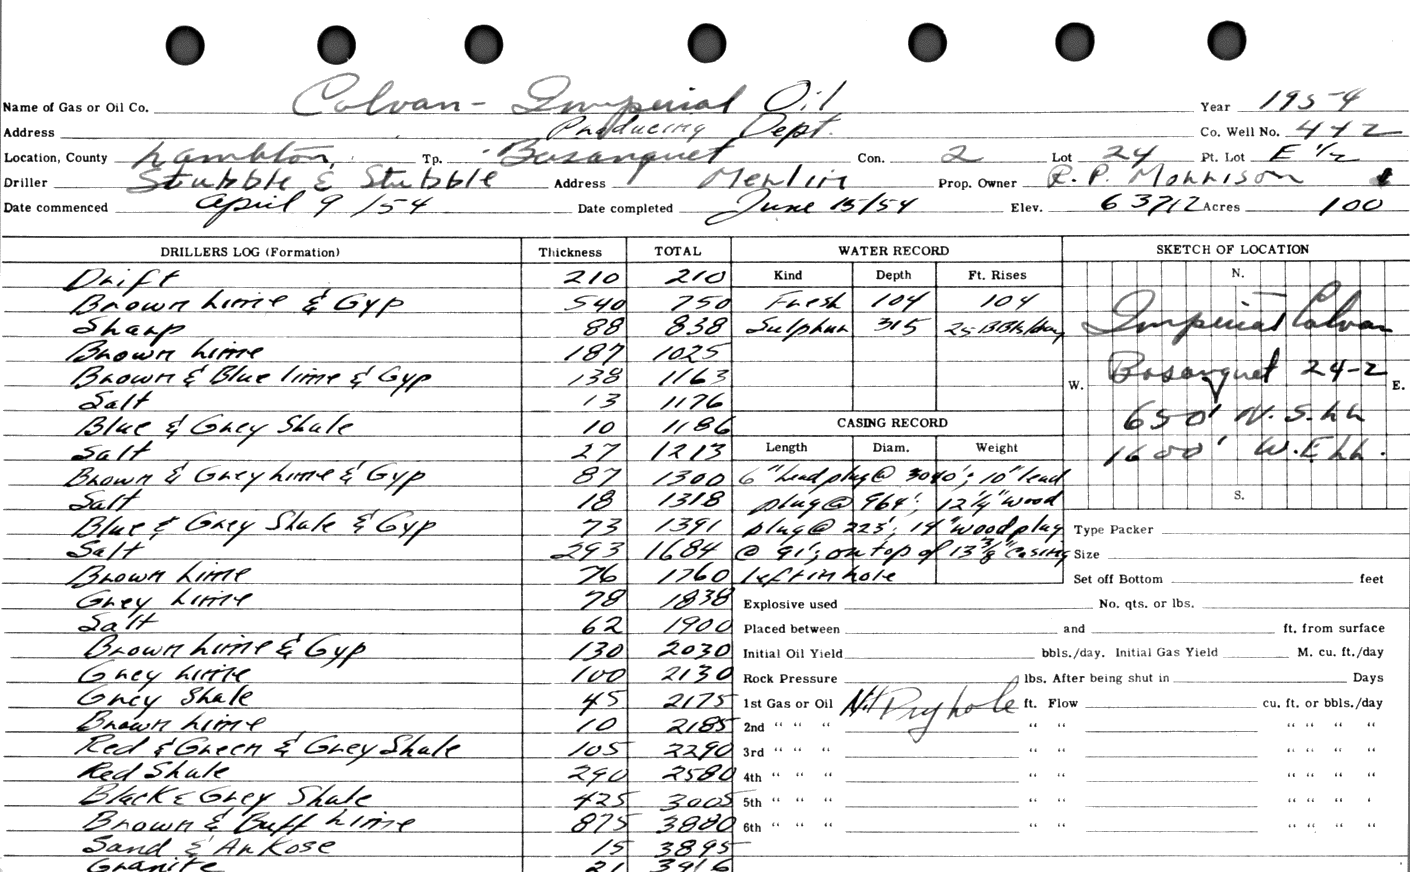 Name of Gas or Oil Co. Colvan - Imperial Oil Year 1954
Address Producing Dept. Co. Well No. 442
Location, County Lambton Tp. Bosanquet Con. 2 Lot 24 Pt. Lot E 1/2
Driller Stubble & Stubble Address Merlin Prop. Owner R. P. Morrison
Date commenced April 9/54 Date completed June 15/54 Elev. 637.12 Acres 100
DRILLERS LOG (Formation) Thickness TOTAL WATER RECORD SKETCH OF LOCATION
Drift 210 210 Kind Depth Ft. Rises N.
Brown Lime & Gyp 540 750 Fresh 104 104
Sharp 88 838 Sulphur 315 25 BBls/day Imperial Colvan
Brown Lime 187 1025
Brown & Blue lime & Gyp 138 1163 W. Bosanquet 24-2 E.
Salt 13 1176
Blue & Grey Shale 10 1186 CASING RECORD 650' N.S.LL
Salt 27 1213 Length Diam. Weight 1600' W.E.LL.
Brown & Grey Lime & Gyp 87 1300 6" lead plug @ 3040'; 10" lead
Salt 18 1318 plug @ 964'; 12 1/4" wood S.
Blue & Grey Shale & Gyp 73 1391 plug @ 223'; 14" wood plug Type Packer
Salt 293 1684 @ 91'; on top of 13 3/8" casing Size
Brown Lime 76 1760 left in hole Set off Bottom feet
Grey Lime 78 1838 Explosive used No. qts. or lbs.
Salt 62 1900 Placed between and ft. from surface
Brown Lime & Gyp 130 2030 Initial Oil Yield bbls./day. Initial Gas Yield M. cu. ft./day
Grey Lime 100 2130 Rock Pressure lbs. After being shut in Days
Grey Shale 45 2175 1st Gas or Oil Nil Dry hole ft. Flow cu. ft. or bbls./day
Brown Lime 10 2185 2nd " " " " " " " " "
Red & Green & Grey Shale 105 2290 3rd " " " " " " " " "
Red Shale 290 2580 4th " " " " " " " " "
Black & Grey Shale 425 3005 5th " " " " " " " " '
Brown & Buff Lime 875 3880 6th " " " " " " " " "
Sand & Arkose 15 3895
Granite 21 3916